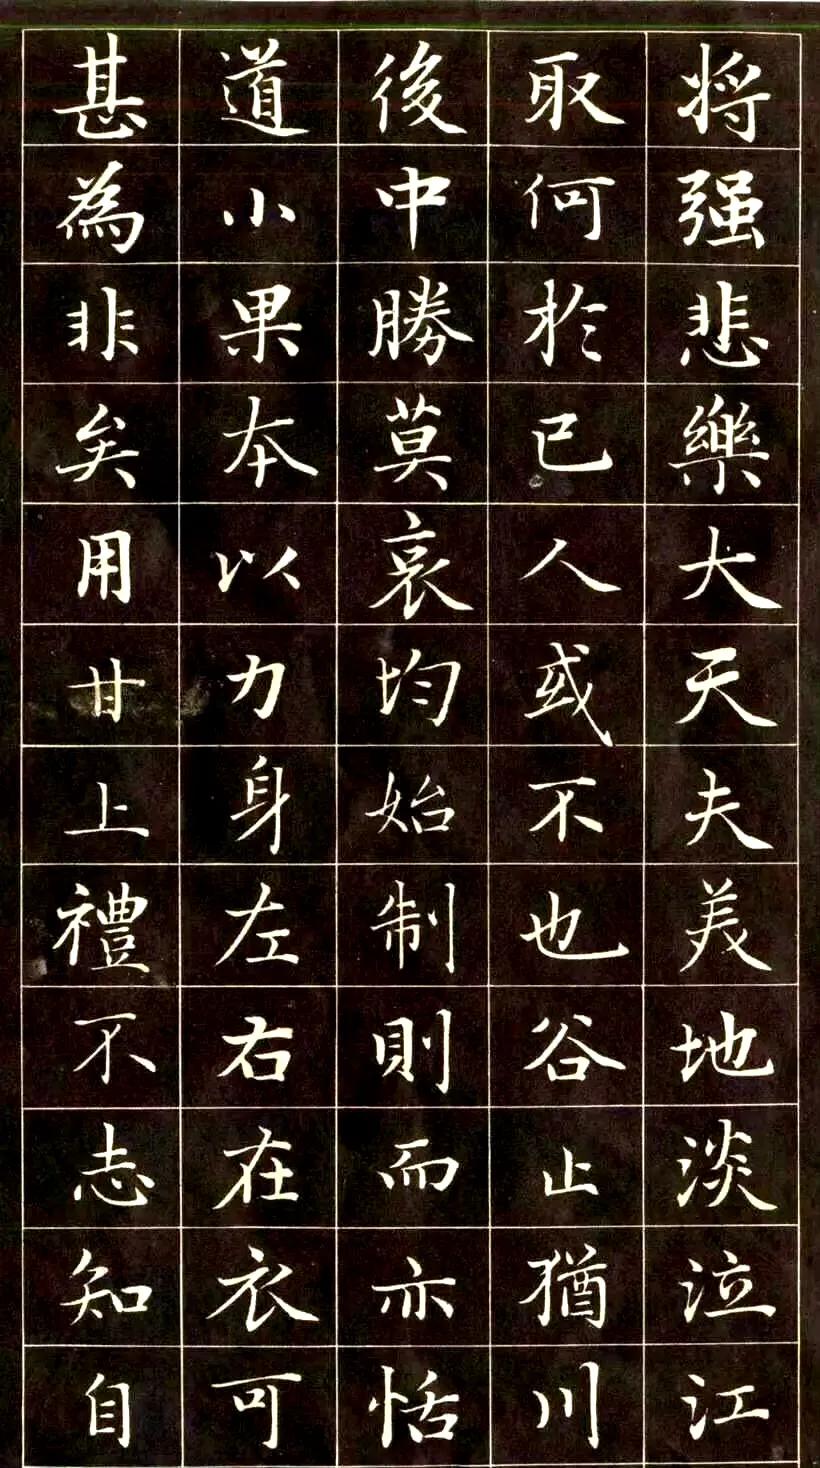 将强悲樂大天夫美地淡泣江
取何於已人或不也谷止猶川
後中勝莫哀均始制則而亦恬
道小果本以力身左右在衣可
甚為非矣用甘上禮不志知自